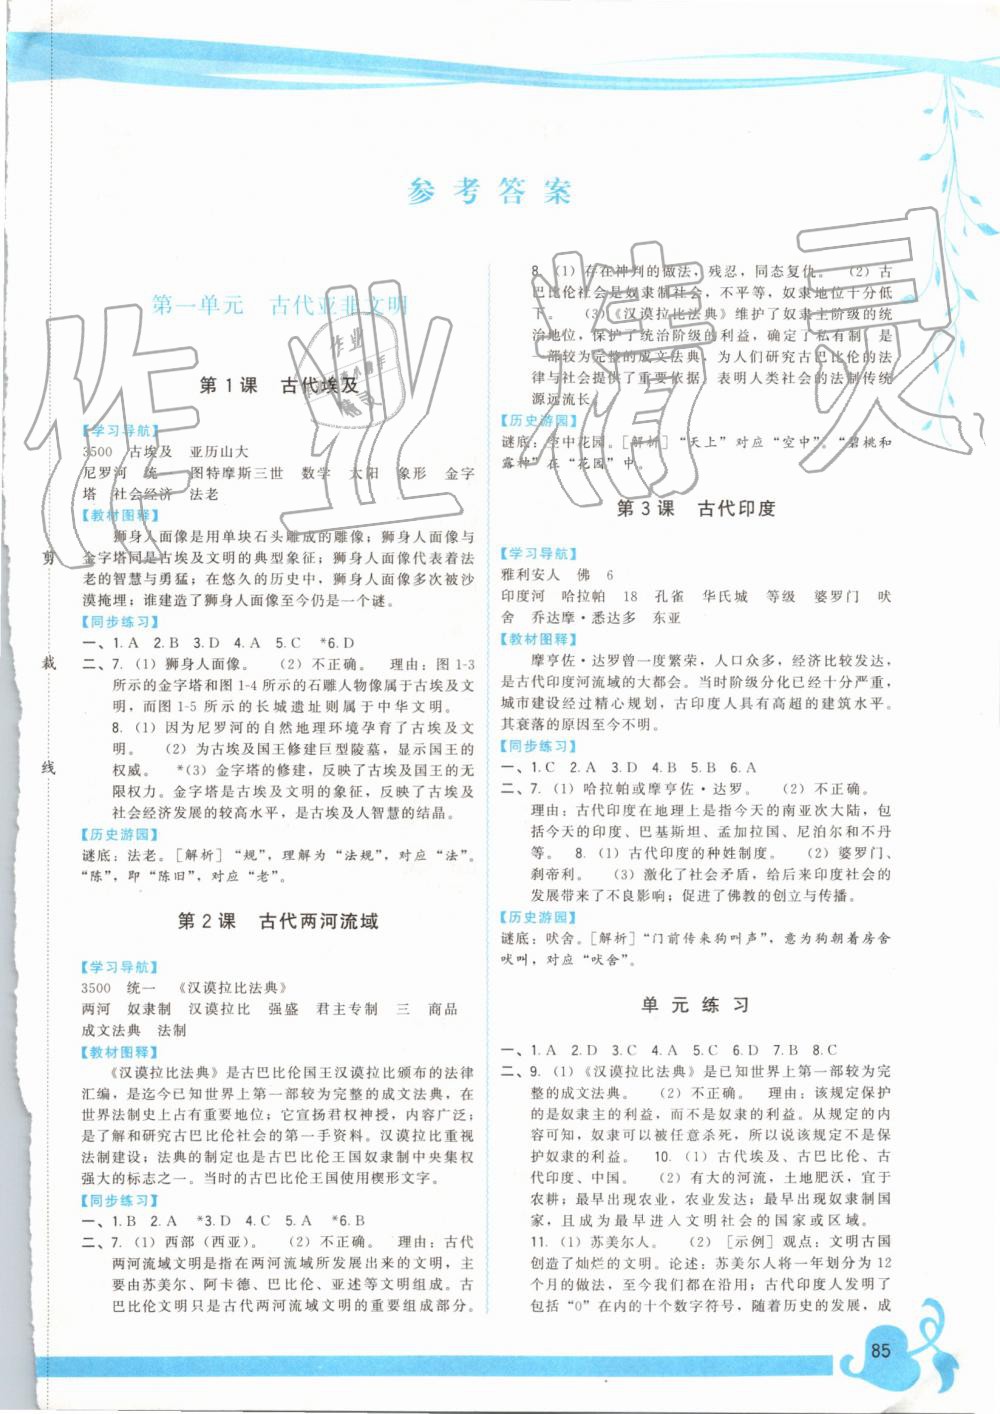 参考答案
第一单元 古代亚非文明
第1课 古代埃及
【学习导航】
3500 古埃及 亚历山大
尼罗河 统一 图特摩斯三世 数学 太阳 象形 金字
塔 社会经济 法老
【教材图释】
狮身人面像是用单块石头雕成的雕像；狮身人面像与
金字塔同是古埃及文明的典型象征；狮身人面像代表着法
老的智慧与勇猛；在悠久的历史中，狮身人面像多次被沙
漠掩埋；谁建造了狮身人面像至今仍是一个谜。
【同步练习】
一、1.A 2.B 3.D 4.A 5.C *6.D
二、7.（1）狮身人面像。 （2）不正确。 理由：图1-3
所示的金字塔和图1-4所示的石雕人物像属于古埃及文
明，而图1-5所示的长城遗址则属于中华文明。
8.（1）因为尼罗河的自然地理环境孕育了古埃及文
明。 （2）为古埃及国王修建巨型陵墓，显示国王的
权威。 *（3）金字塔的修建，反映了古埃及国王的无
限权力。金字塔是古埃及文明的象征，反映了古埃及
社会经济发展的较高水平，是古埃及人智慧的结晶。
【历史游园】
谜底：法老。［解析］“规”，理解为“法规”，对应“法”。
“陈”，即“陈旧”，对应“老”。
第2课 古代两河流域
【学习导航】
3500 统一 《汉谟拉比法典》
两河 奴隶制 汉谟拉比 强盛 君主专制 三 商品
成文法典 法制
【教材图释】
《汉谟拉比法典》是古巴比伦国王汉谟拉比颁布的法律
汇编，是迄今已知世界上第一部较为完整的成文法典，在
世界法制史上占有重要地位；它宣扬君权神授，内容广泛；
是了解和研究古巴比伦社会的第一手资料。汉谟拉比重视
法制建设；法典的制定也是古巴比伦王国奴隶制中央集权
强大的标志之一。当时的古巴比伦王国使用楔形文字。
【同步练习】
一、1.B 2.A *3.D 4.C 5.A *6.B
二、7.（1）西部（西亚）。 （2）不正确。 理由：古代
两河流域文明是指在两河流域所发展出来的文明，主
要由苏美尔、阿卡德、巴比伦、亚述等文明组成。古
巴比伦文明只是古代两河流域文明的重要组成部分。
8.（1）存在神判的做法，残忍，同态复仇。 （2）古
巴比伦社会是奴隶制社会，不平等，奴隶地位十分低
下。 （3）《汉谟拉比法典》维护了奴隶主阶级的统
治地位，保护了统治阶级的利益，确定了私有制，是
一部较为完整的成文法典，为人们研究古巴比伦的法
律与社会提供了重要依据，表明人类社会的法制传统
源远流长。
【历史游园】
谜底：空中花园。［解析］“天上”对应“空中”，“碧桃和
露种”在“花园”中。
第3课 古代印度
【学习导航】
雅利安人 佛 6
印度河 哈拉帕 18 孔雀 华氏城 等级 婆罗门 吠
舍 乔达摩·悉达多 东亚
【教材图释】
摩亨佐·达罗曾一度繁荣，人口众多，经济比较发达，
是古代印度河流域的大都会。当时阶级分化已经十分严重，
城市建设经过精心规划，古印度人具有高超的建筑水平。
其衰落的原因至今不明。
【同步练习】
一、1.C 2.A 3.D 4.B 5.B 6.A
二、7.（1）哈拉帕或摩亨佐·达罗。 （2）不正确。
理由：古代印度在地理上是指今天的南亚次大陆，包
括今天的印度、巴基斯坦、孟加拉国、尼泊尔和不丹
等。 8.（1）古代印度的种姓制度。 （2）婆罗门、
刹帝利。 （3）激化了社会矛盾，给后来印度社会的
发展带来了不良影响；促进了佛教的创立与传播。
【历史游园】
谜底：吠舍。［解析］“门前传来狗叫声”，意为狗朝着房舍
吠叫，对应“吠舍”。
单元练习
一、1.A 2.D 3.C 4.A 5.C 6.D 7.B 8.C
二、9.（1）《汉谟拉比法典》是已知世界上第一部较为完
整的成文法典。 （2）不正确。 理由：该规定保护
的是奴隶主的利益，而不是奴隶的利益。从规定的内
容可知，奴隶可以被任意杀死，所以说该规定不是保
护奴隶的利益。 10.（1）古代埃及、古巴比伦、古
代印度、中国。 （2）有大的河流，土地肥沃，宜于
农耕；最早出现农业，农业发达；最早出现奴隶制国
家，且成为最早进入文明社会的国家或区域。
11.（1）苏美尔人。 （2）［示例］观点：文明古国
创造了灿烂的文明。论述：苏美尔人将一年划分为12
个月的做法，至今我们都在沿用；古代印度人发明了
包括“0”在内的十个数字符号，随着历史的发展，成
85
剪
裁
线
作业精灵